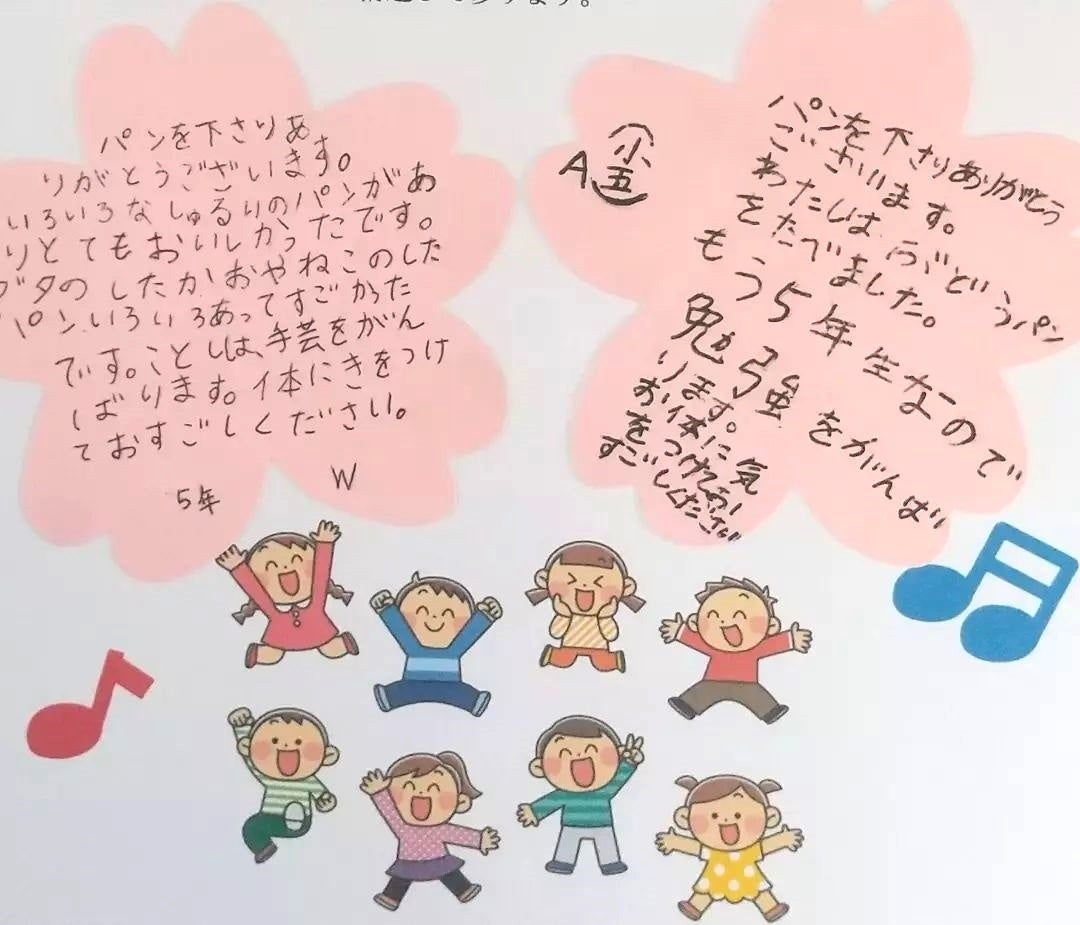 パンを下さりあ
りがとうございます。
いろいろなしゅるりのパンがあ
りとてもおいしかったです。
ブタのしたかおやねこのした
パンいろいろあってすごかった
です。ことしは、手芸をがん
ばります。体にきをつけ
ておすごしください。
5年 W
A
小
五
パンを下さりありがとう
ございます。
わたしはぶどうパン
をたべました。
もう5年生なので
強をがんば
ります。
お体に気
をつけてお
すごしください